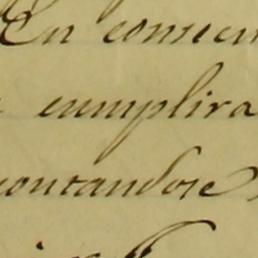 En consecu
cumplira
contandose